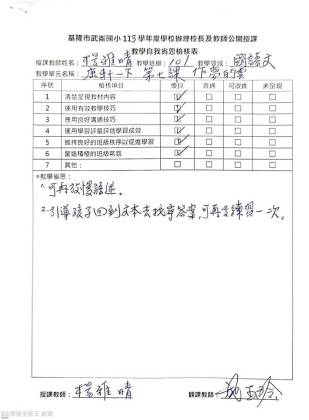 基隆市武崙國小113學年度學校辦理校長及教師公開授課
教學自我省思檢核表
授課教師姓名：楊雅晴 教學班級：101 教學領域：國語文
教學單元名稱：康軒一下 第七課 作夢的雲
序號 檢核項目 優良 普通 可改進 未呈現
1 清楚呈現教材內容 ✓
2 運用有效教學技巧 ✓
3 應用良好溝通技巧 ✓
4 運用學習評量評估學習成效 ✓
5 維持良好的班級秩序以促進學習 ✓
6 營造積極的班級氣氛 ✓
7 其他：
*教學省思：
1.可再放慢語速。
2.引導孩子回到文本去找尋答案，可再多練習一次。
授課教師：楊雅晴 觀課教師：